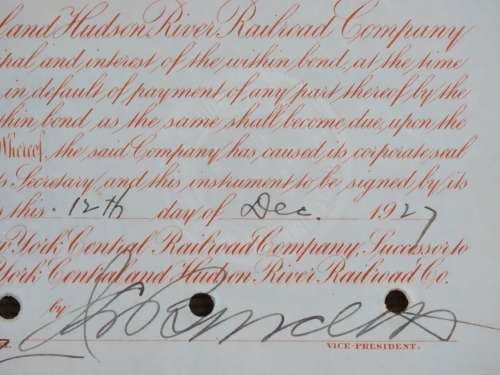 and Hudson River Railroad Company
and interest of the within bond, at the time
in default of payment of any part thereof by the
bond as the same shall become due, upon the
Whereof, the said Company has caused its corporate seal
Secretary, and this instrument to be signed by its
this 12th day of Dec. 1927
York Central Railroad Company, Successor to
York Central and Hudson River Railroad Co.
by
VICE-PRESIDENT.